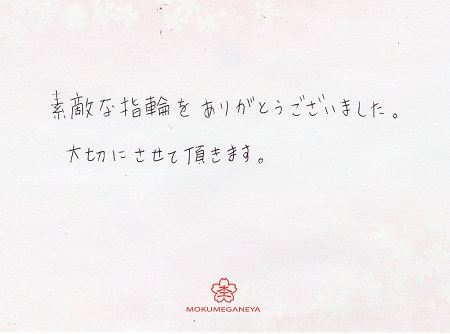 素敵な指輪をありがとうございました。
大切にさせて頂きます。
MOKUMEGANEYA